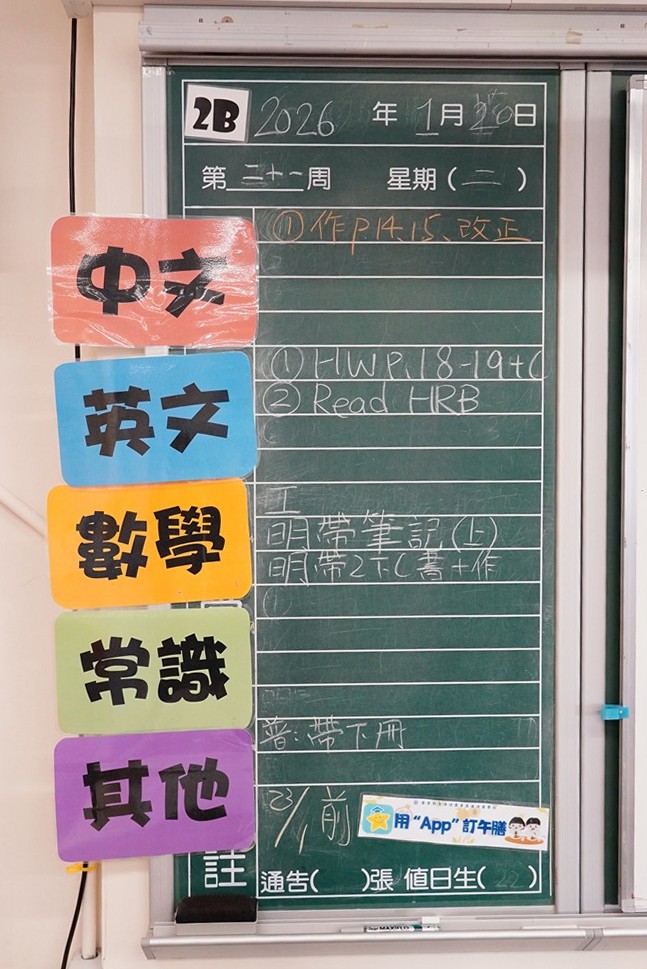 2B 2026 年 1月20日
第二十一周 星期(二)
中文
①作p.14、15、改正
英文
①HWP.18-19+C
②Read HRB
數學
工
明帶筆記(上)
明帶2下C書+作
常識
其他
普:帶下冊
23/1前
用“App”訂午膳
註
通告( )張 值日生(22)